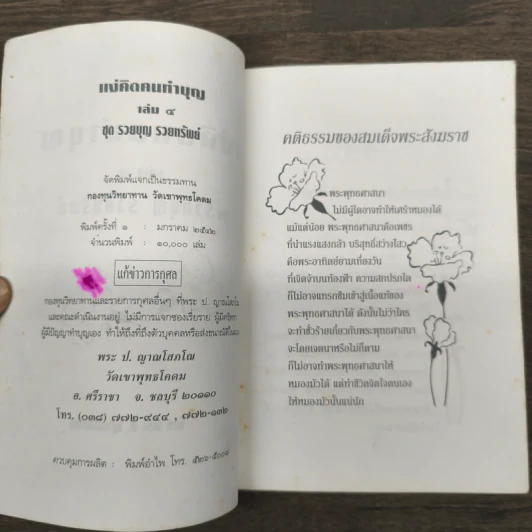 แง่คิดคนทำบุญ
เล่ม ๔
ชุด รวยบุญ รวยทรัพย์
จัดพิมพ์แจกเป็นธรรมทาน
กองทุนวิทยาทาน วัดเขาพุทธโคดม
พิมพ์ครั้งที่ ๑ : มกราคม ๒๕๔๒
จำนวนพิมพ์ : ๑๐,๐๐๐ เล่ม
แก้ข่าวการกุศล
กองทุนวิทยาทานและรายการกุศลอื่นๆ ที่พระ ป.
และคณะดำเนินงานอยู่ ไม่มีการแจกซองเรี่ยราย
ผู้มีปัญญาทำบุญเอง ทำให้ถึงที่ถึงตัวบุคคลหรือส่งธนาณัติ
พระ ป. ญาณโสภโณ
วัดเขาพุทธโคดม
อ. ศรีราชา จ. ชลบุรี ๒๐๑๑๐
โทร. (๐๓๘) ๗๗๒-๙๔๔ , ๗๗๒-๑๓๒
ควบคุมการผลิต : พิมพ์อำไพ โทร.
คติธรรมของสมเด็จพระสังฆราช
พระพุทธศาสนา
ไม่มีผู้ใดอาจทำให้เศร้าหมองได้
แม้แต่น้อย พระพุทธศาสนาคือเพชร
ที่น้ำแรงแสงกล้า บริสุทธิ์สว่างไสว
คือพระอาทิตย์ยามเที่ยงวัน
ที่เจิดจ้าบนท้องฟ้า ความสกปรกใด
ก็ไม่อาจแทรกซึมเข้าสู่เนื้อแท้ของ
พระพุทธศาสนาได้ ดังนั้นไม่ว่าใคร
จะทำชั่วร้ายเกี่ยวกับพระพุทธศาสนา
จะโดยเจตนาหรือไม่ก็ตาม
ก็ไม่อาจทำพระพุทธศาสนาให้
หมองมัวได้ แต่ทำชีวิตจิตใจตนเอง
ให้หมองมัวนั้นแน่นัก